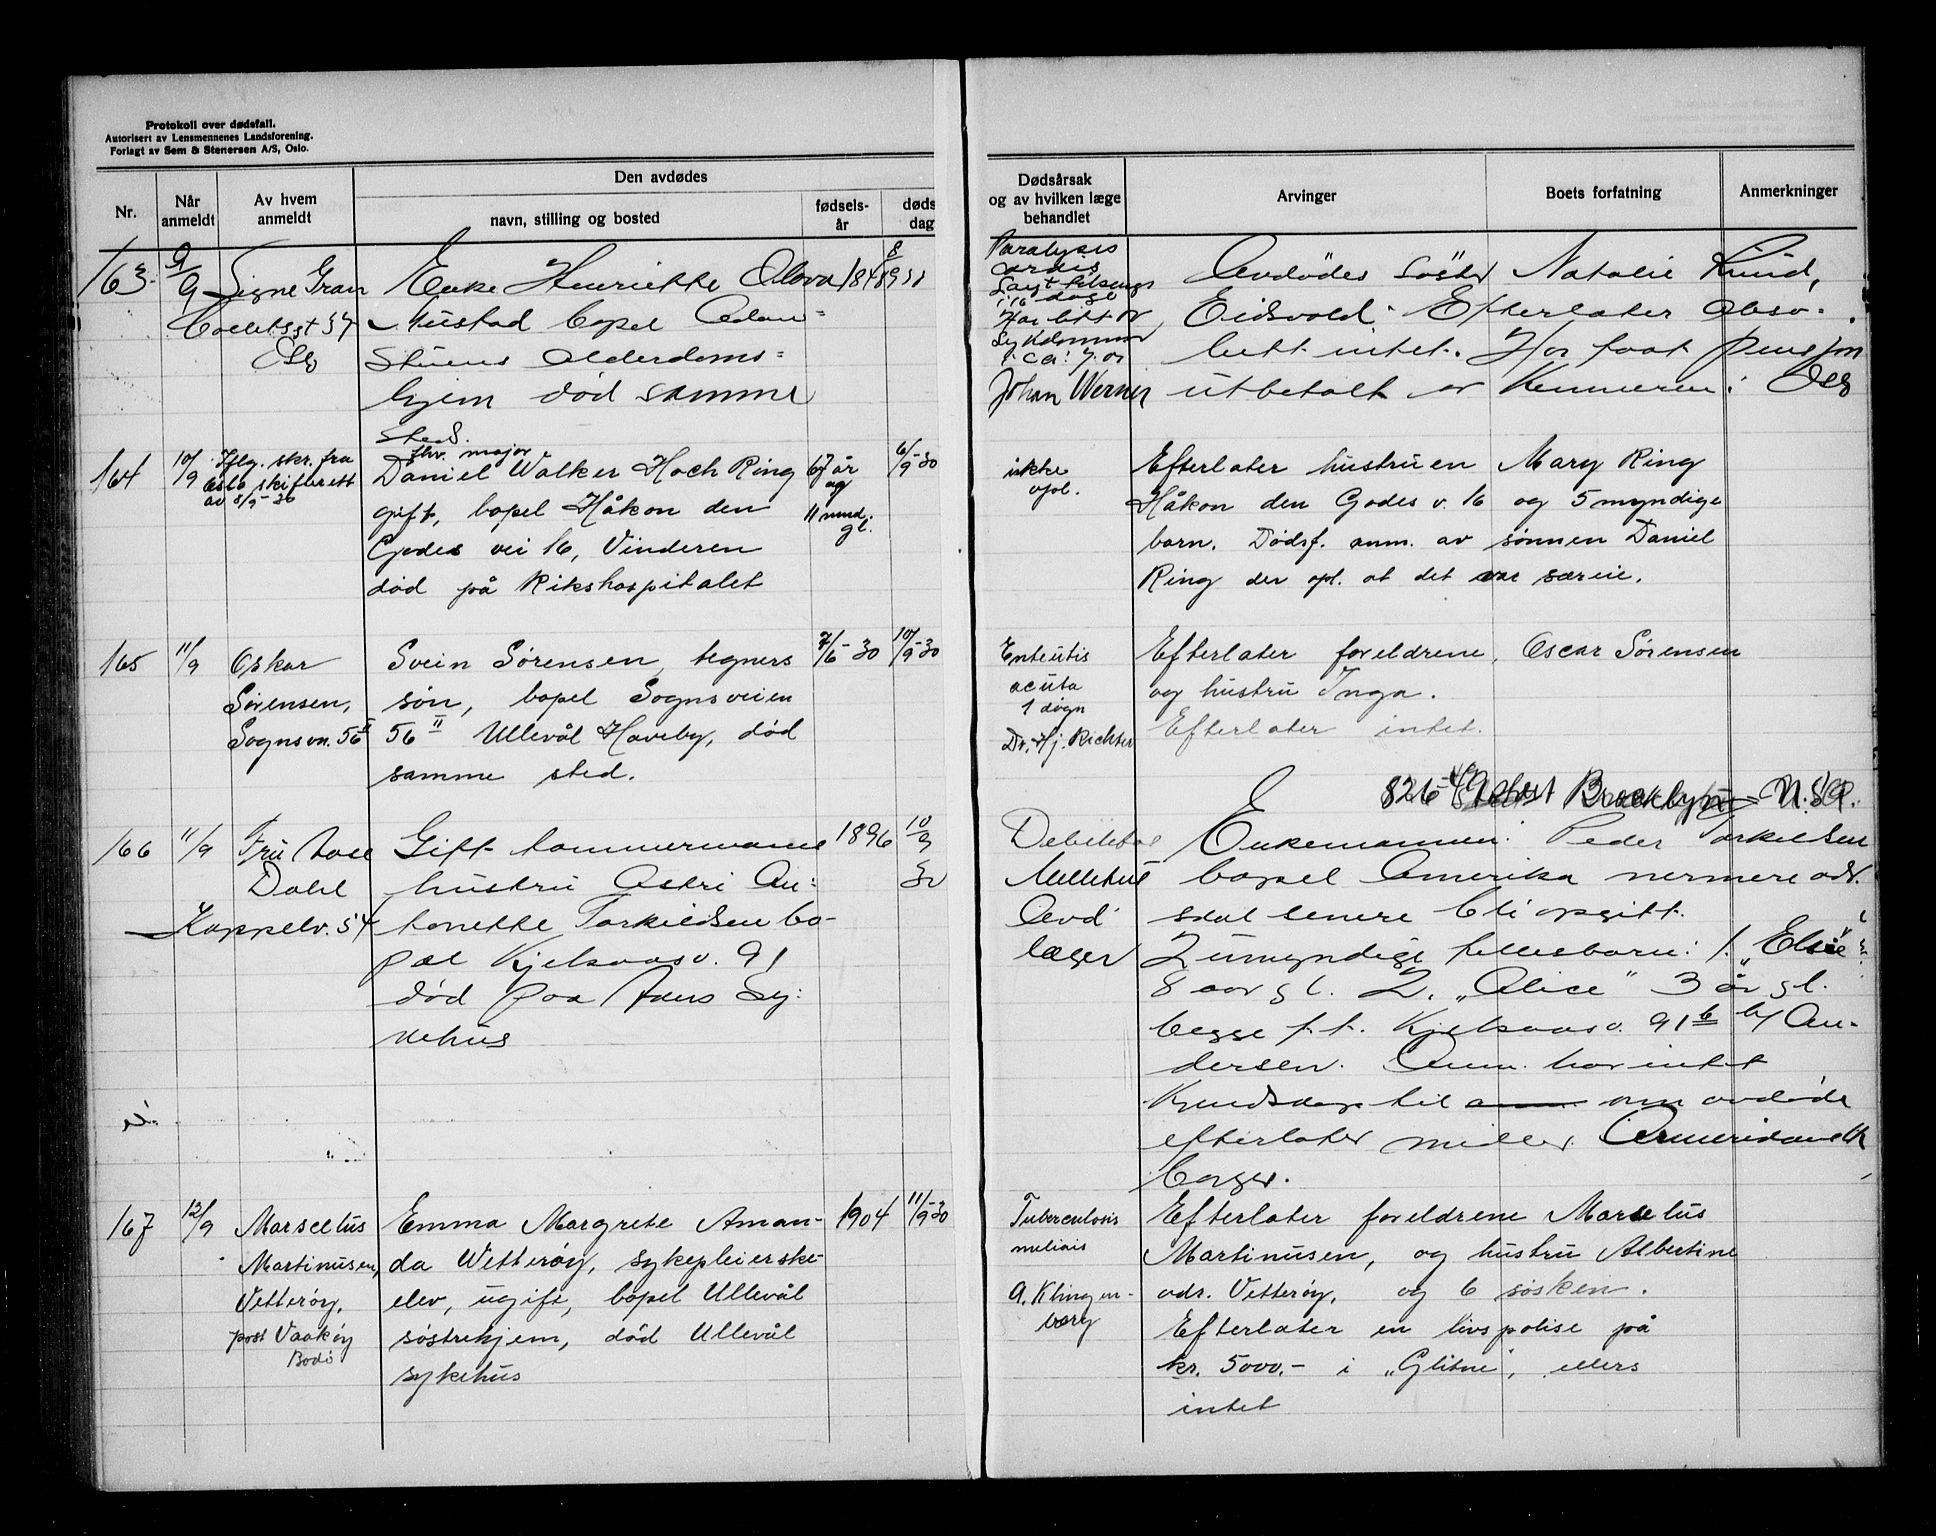 Protokoll over dødsfall.
Autorisert av Lensmennenes Landsforening.
Forlagt av Sem & Stenersen A/S, Oslo.
Nr.
Når anmeldt
Av hvem anmeldt
Den avdødes
navn, stilling og bosted
fødsels-
år
døds
dag
Dødsårsak
og av hvilken læge
behandlet
Arvinger
Boets forfatning
Anmerkninger
163.
9/9
Signe Gran
Oslo
Enke Henriette Olava
Mustad bopel Adam=
stuens Alderdoms=
hjem død samme
sted.
Paralysis
cordis
i 16 dage
Johan Werner
Avdødes søster Natalie Lund,
Eidsvold. Efterlater abso-
lutt intet. Har faat Pensjon
utbetalt av Kemneren i Oslo
164
10/9
Iflg. skr. fra
Oslo skifterett
av 8/9-30
fhv. major
Daniel Walker Hoch Ring
gift, bopel Håkon den
Godes vei 16, Vinderen
død på Rikshospitalet
67 år
og
11 mnd.
gl.
6/9-30
ikke
opl.
Efterlater hustruen Mary Ring
Håkon den Godes v. 16 og 5 myndige
barn. Dødsf. anm. av sønnen Daniel
Ring der opl. at det var særeie.
165
11/9
Oskar
Sørensen,
Sognsvn. 56 II
Svein Sørensen, tegners
søn, bopel Sognsveien
56 II Ullevål Haveby, død
samme sted.
7/6-30
10/9-30
Enteritis
acuta
1 døgn
Dr. Hj. Richter
Efterlater foreldrene, Oscar Sørensen
og hustru Inga.
Efterlater intet.
826 Brooklyn U.S.A.
166
11/9
Fru Aase
Dahl
Kappelv. 54
Gift tømmermanns
hustru Astri An:
tonette Torkildsen bo-
pæl Kjelsaasv. 91
død paa Akers Sy:
kehus
1896
10/9
30
Mellitus
Avd
læger
Enkemannen: Peder Torkildsen
bopel Amerika nermere adr.
skal senere bli opgitt.
2 umyndige fellesbarn: 1. „Elsie"
8 aar gl. 2. „Alice" 3 år gl.
begge f.t. Kjelsaasv. 91 b b/ An-
dersen. Anm. har intet
Kjendskap til om avdøde
efterlater midler. Amerikansk
borger.
167
12/9
Marselius
Martinusen,
Vetterøy,
post Vaakøy
Bodø
Emma Margrete Aman-
da Wetterøy, sykepleierske-
elev, ugift, bopel Ullevål
søstrehjem, død Ullevål
sykehus
1904
11/9-30
Tuberculosis
miliais
A. Klingen-
berg
Efterlater foreldrene Marselus
Martinusen, og hustru Albertine
adr. Vetterøy, og 6 søsken.
Efterlater en livspolise på
kr. 5000,- i „Glitne", ellers
intet